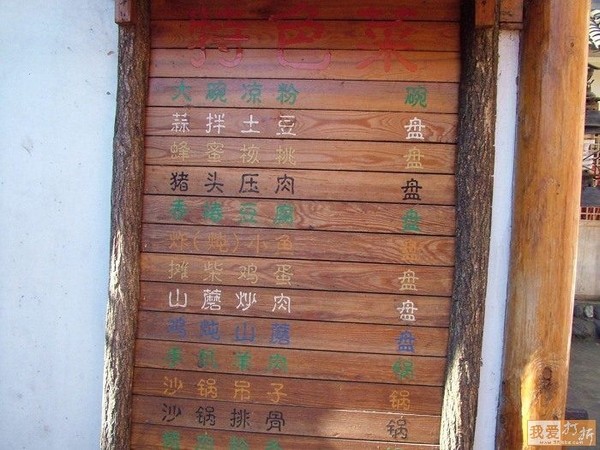 特色菜
大碗凉粉 碗
蒜拌土豆 盘
蜂蜜核桃 盘
猪头压肉 盘
香椿豆腐 盘
炸(炖)小鱼 盘
摊柴鸡蛋 盘
山蘑炒肉 盘
鸡炖山蘑 盘
羊肉 锅
沙锅吊子 锅
沙锅排骨 锅
我爱打折